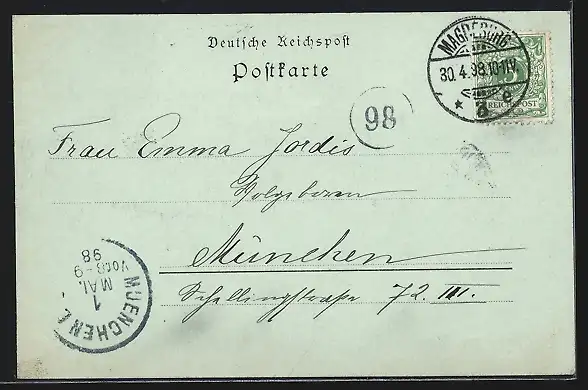 Deutsche Reichspost
Postkarte
MAGDEBURG
30.4.98.10-11V.
* d e
REICHSPOST
98
Frau Emma Jordis
München
Schellingstrasse 72 III.
MUENCHEN
1
MAI.
Vor.8-9
98